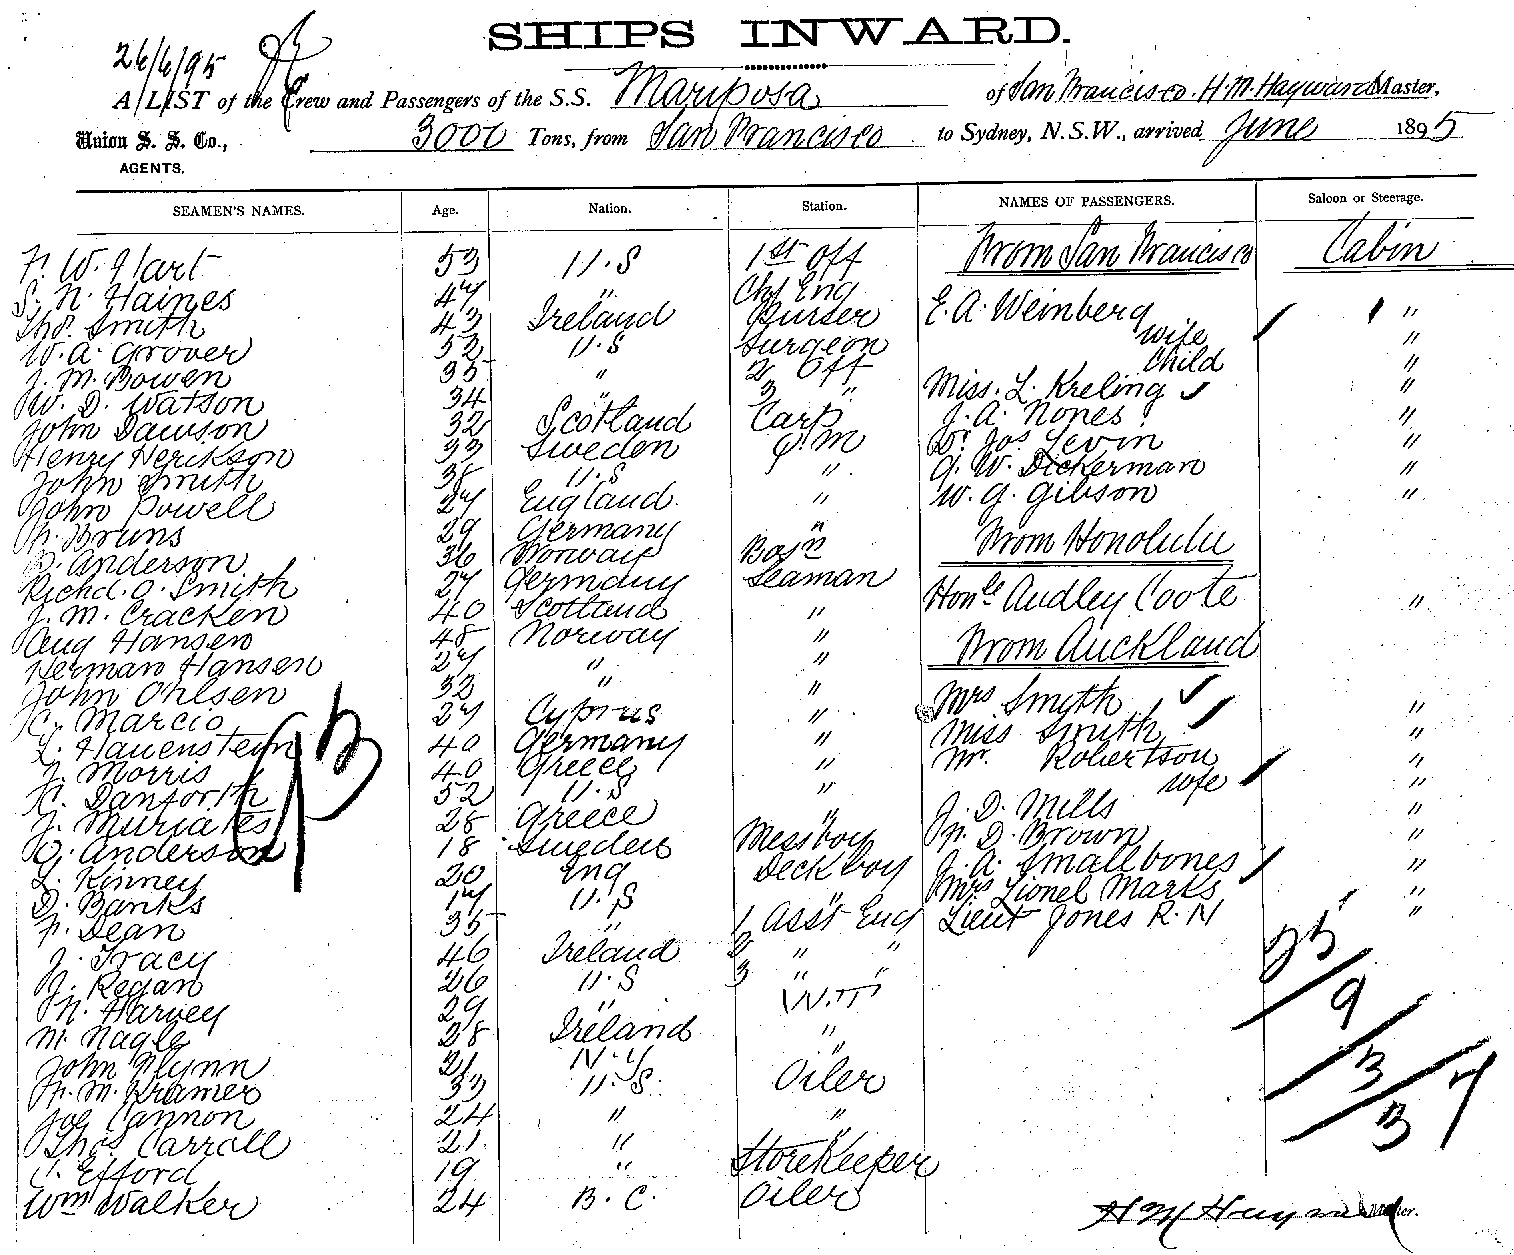 SHIPS INWARD.
26/6/95
A LIST of the Crew and Passengers of the S.S. Mariposa of San Francisco. H. M. Hayward Master,
Union S. S. Co., 3000 Tons, from San Francisco to Sydney, N.S.W., arrived June 1895
AGENTS.
SEAMEN'S NAMES. Age. Nation. Station. NAMES OF PASSENGERS. Saloon or Steerage.
F. W. Hart 53 U.S 1st Off From San Francisco Cabin
S. N. Haines 47 " Chf Eng
Thos. Smith 43 Ireland Purser E. A. Weinberg "
W. A. Grover 52 U.S Surgeon wife "
J. M. Bowen 35 " 2 Off child "
W. D. Watson 34 " 3 " Miss. L. Kreling "
John Dawson 32 Scotland Carp J. A. Nones "
Henry Herickson 33 Sweden Q.M Dr Jos Levin "
John Smith 38 U.S " G. W. Dickerman "
John Powell 27 England " W. G. Gibson "
F. Bruns 29 Germany " From Honolulu
Anderson 36 Norway Bosn
Richd. O. Smith 27 Germany Seaman Honle Audley Coote "
J. M. Cracken 40 Scotland "
Aug Hansen 48 Norway " From Auckland
Herman Hansen 27 " "
John Ohlsen 32 " " Mrs Smyth "
C. Marcio 27 Cyprus " Miss Smyth "
L. Hauenstein 40 Germany " Mr. Robertson "
J. Morris 40 Greece " wife "
C. Danforth 52 U.S " J. D. Mills "
J. Muriates 28 Greece " F. D. Brown "
O. Anderson 18 Sweden Messboy J. A. Smallbones "
L. Kinney 20 Eng Deck boy Mrs Lionel Marks "
D. Banks 17 U.S " Lieut Jones R.N "
F. Dean 35 " 1 Asst Eng
J. Tracy 46 Ireland 2 " "
J. Regan 26 U.S 3 " "
N. Harvey 29 " W.T
M. Nagle 28 Ireland "
John Flynn 21 N.Y "
F. M. Kramer 33 U.S. Oiler
Joe Cannon 24 " "
Thos. Carroll 21 " "
C. Efford 19 " Storekeeper
Wm Walker 24 B. C. Oiler
93
25/9/3/3 7
H M Hayward Master.